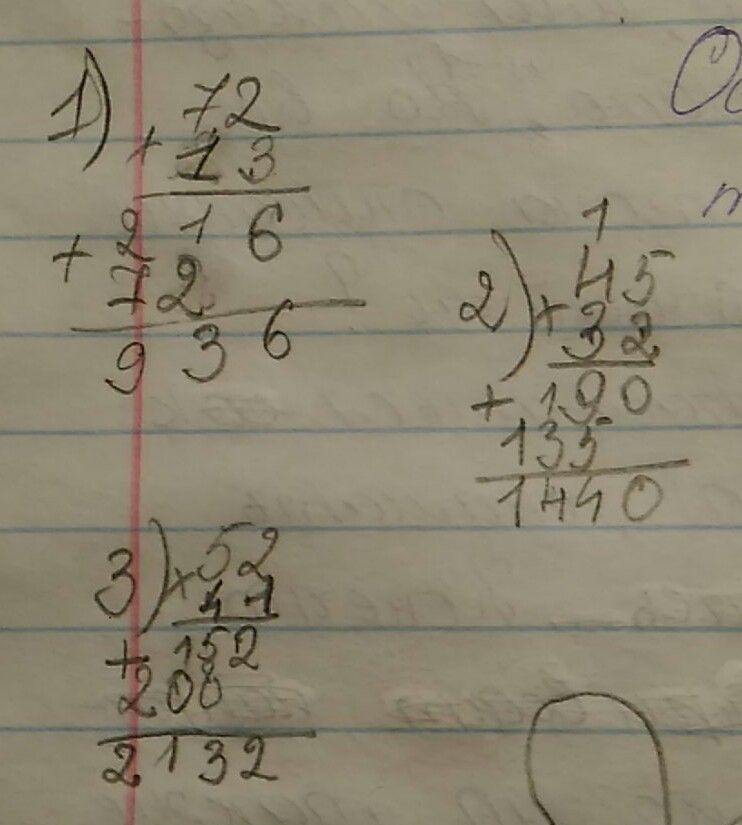 1) 72
× 13
+ 216
72
936
1
2) 45
× 32
+ 190
135
1440
3) × 52
41
+ 152
208
2132